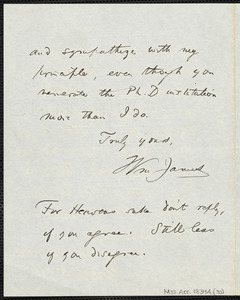 and sympathize with my
principles, even though you
venerate the Ph.D institution
more than I do.
Truly yours,
Wm James
For Heavens sake don't reply,
if you agree. Still less
if you disagree.
Mss. Acc.